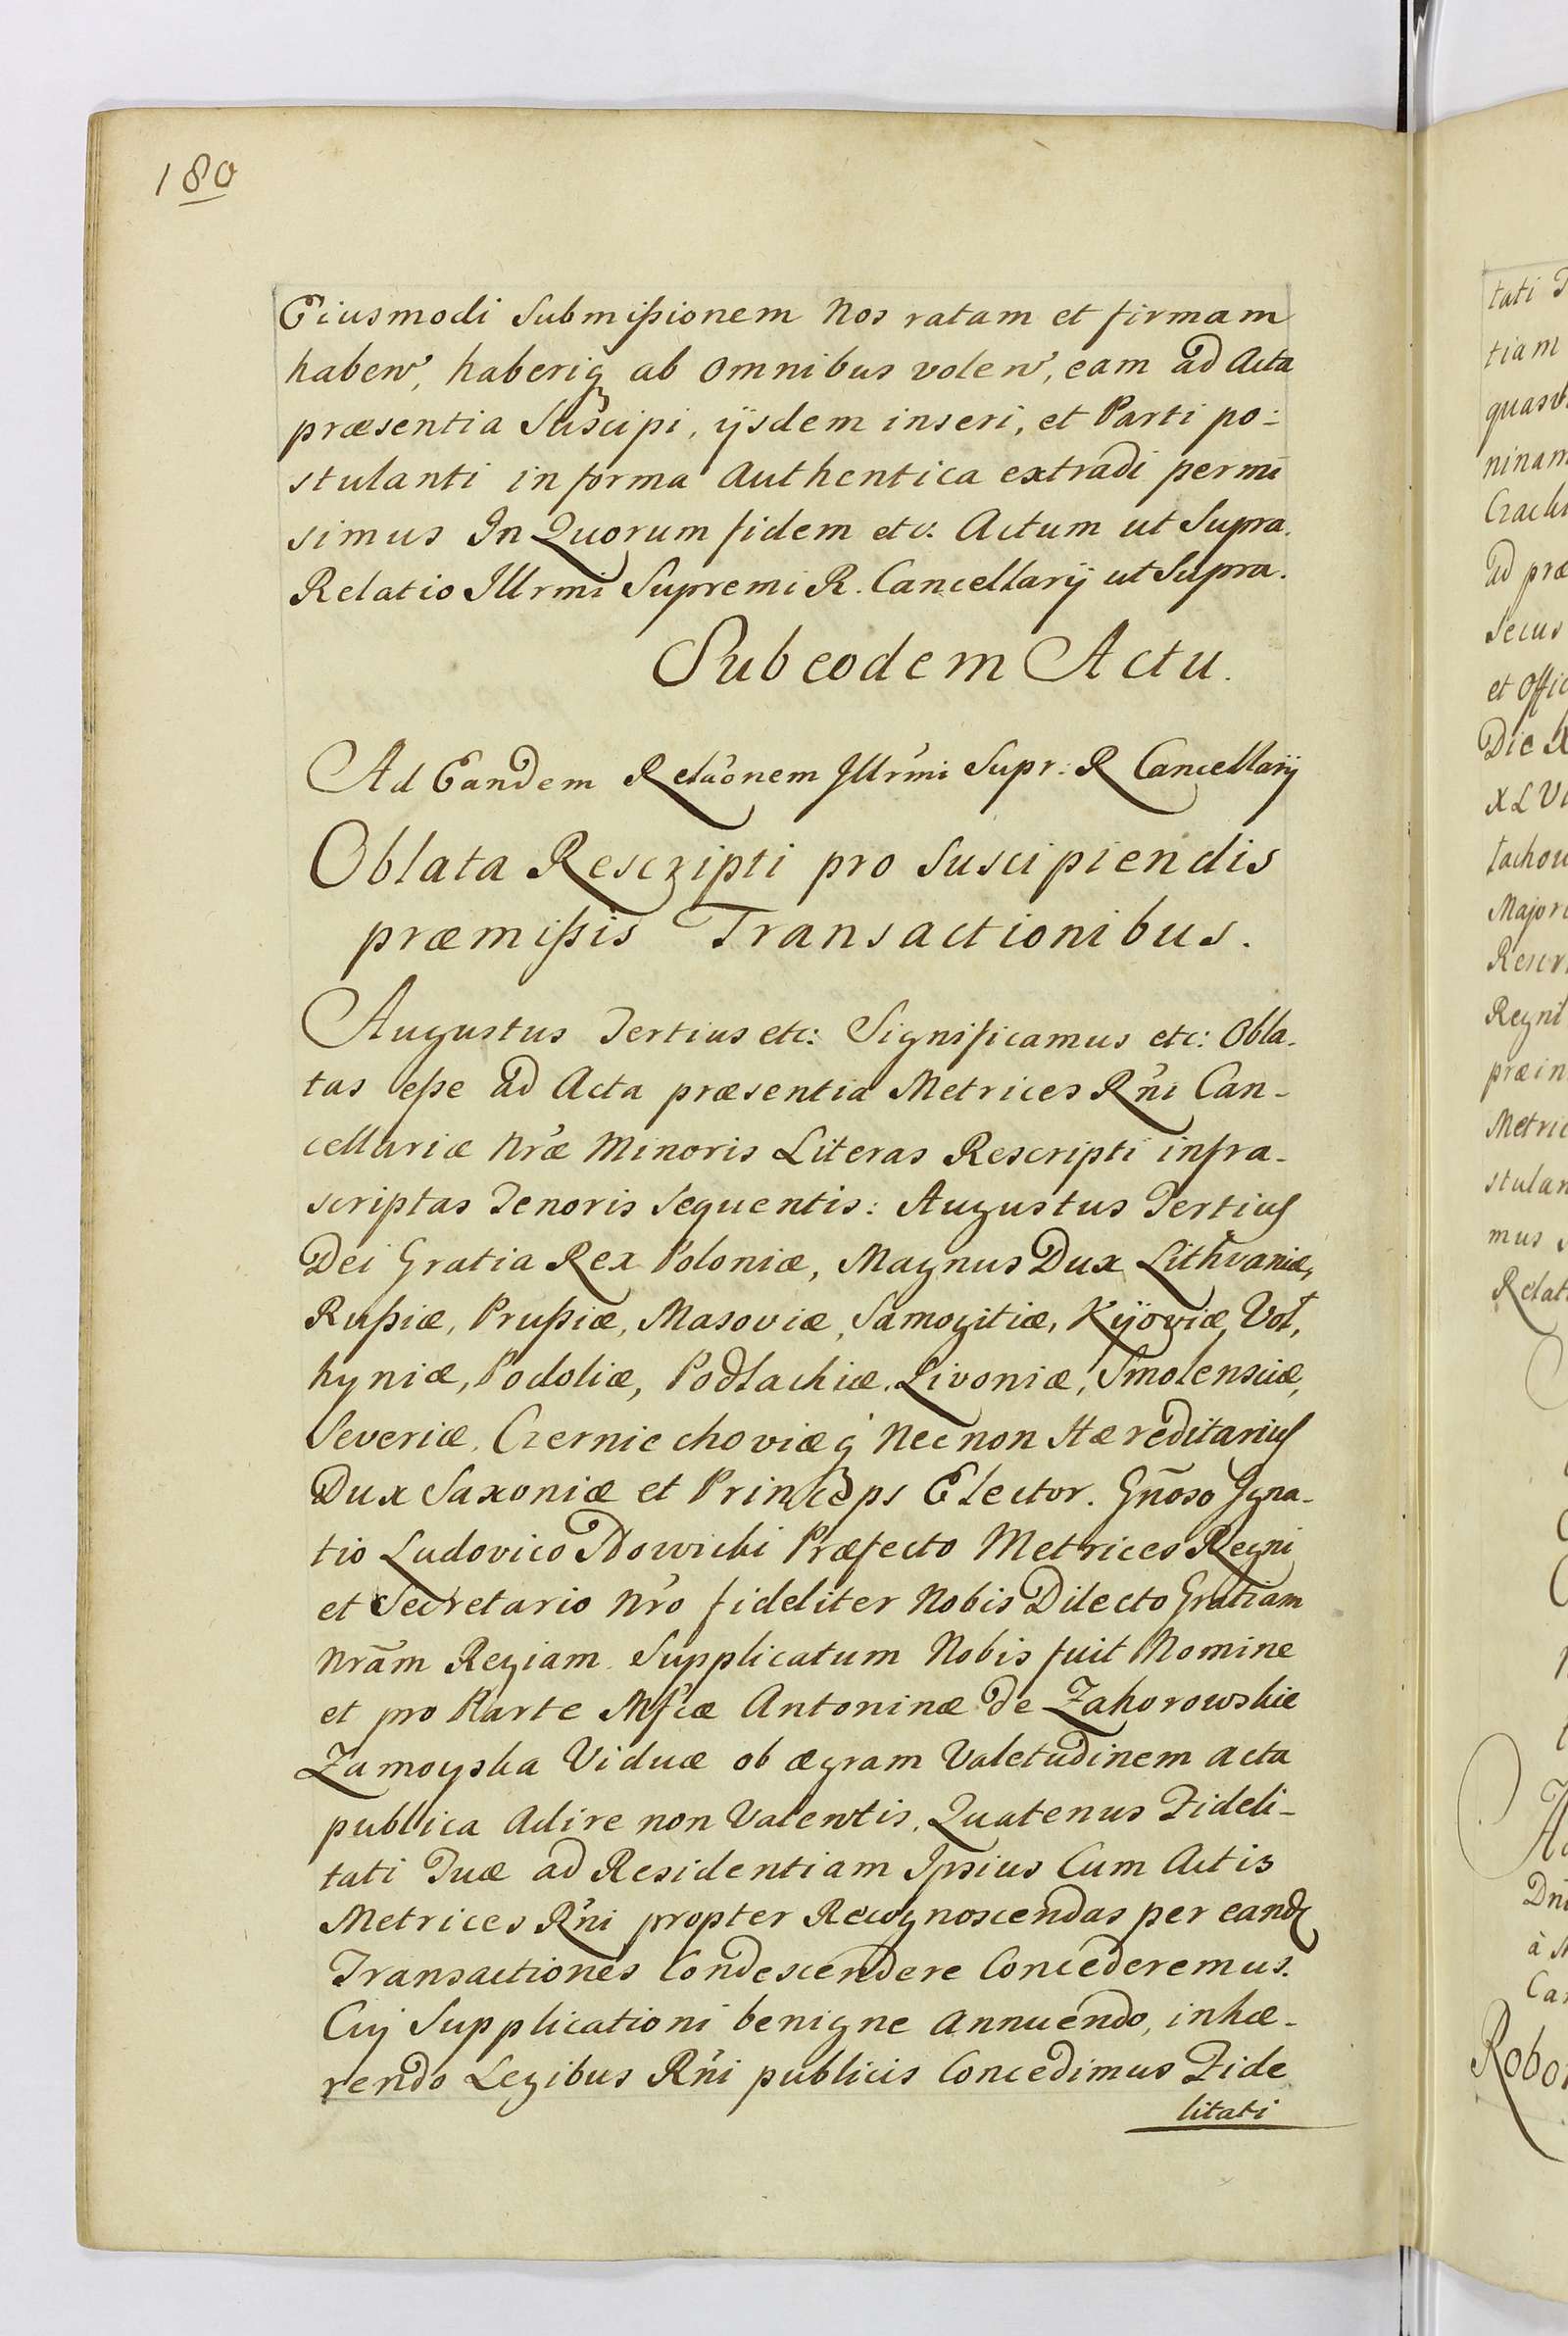 180
Eiusmodi Submißionem Nos ratam et firmam
haben̄, haberiq ab omnibus volen̄, eam ad Acta
præsentia Suscipi, ijsdem inseri, et Parti po-
stulanti in forma Authentica extradi permi
simus In Quorum fidem etc: Actum ut Supra.
Relatio Illrmi Supremi R. Cancellarij ut Supra.
Sub eodem Actu.
Ad Eandem Relãonem Illr̃mi Supr: R Cancellarij
Oblata Rescripti pro Suscipiendis
præmißis Transactionibus.
Augustus Tertius etc: Significamus etc: Obla-
tas eße ad Acta præsentia Metrices Rñi Can-
cellariæ Nr̃æ Minoris Literas Rescripti infra-
scriptas Tenoris Sequentis: Augustus Tertius
Dei Gratia Rex Poloniæ, Magnus Dux Lithvaniæ,
Rußiæ, Prußiæ, Masoviæ, Samogitiæ, Kijoviæ, Vol,
hyniæ, Podoliæ, Podlachiæ, Livoniæ, Smolensciæ,
Severiæ, Czerniechoviæq Necnon Hæreditarius
Dux Saxoniæ et Princeps Elector. Gñoso Igna-
tio Ludovico Nowicki Præfecto Metrices Regni
et Secretario Nr̃o fideliter Nobis Dilecto Gratiam
Nrãm Regiam. Supplicatum Nobis fuit Nomine
et pro Parte Mf̃cæ Antoninæ de Zahorowskie
Zamoyska Viduæ ob ægram Valetudinem acta
publica Adire non Valentis, Quatenus Fideli-
tati Tuæ ad Residentiam Ipsius Cum Actis
Metrices Rñi propter Recognoscendas per eand
Transactiones Condescendere Concederemus.
Cuj Supplicationi benigne Annuendo, inhæ-
rendo Legibus Rñi publicis Concedimus Fide
litati
tati
tiam
ninam
ad præ
Secus
et Offic
Die
Major
Regni
præin
Metric
stulan
mus
Relat